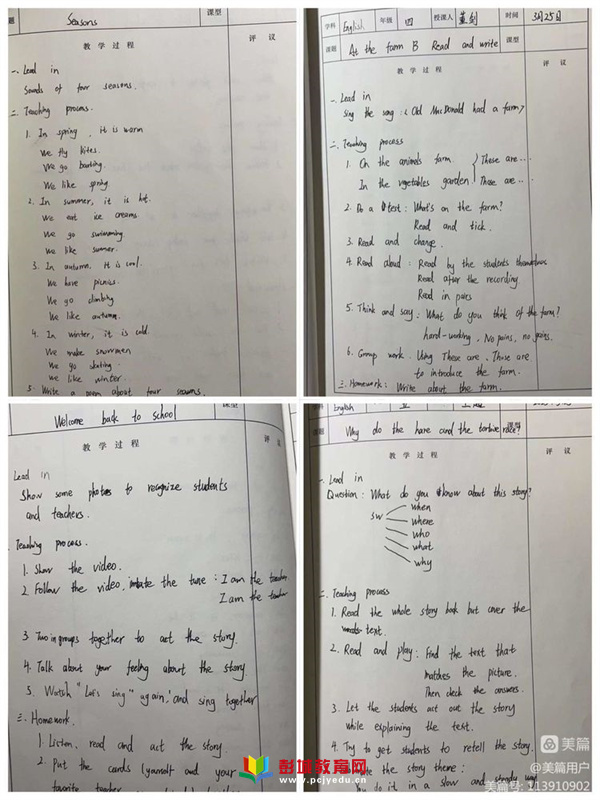 题 Seasons 课型
教 学 过 程 评 议
一. Lead in
Sounds of four seasons.
二. Teaching process.
1. In spring, it is warm
We fly kites.
We go boating.
We like spring.
2. In summer, it is hot.
We eat ice creams.
We go swimming
We like summer.
3. In autumn. It is cool.
We have picnics.
We go climbing
We like autumn.
4. In winter, it is cold.
We make snowmen
We go skating.
We like winter.
5. Write a poem about four seasons.
学科 English 年级 四 授课人 时间 3月25日
课题 At the farm B Read and write 课型
教 学 过 程 评 议
一. Lead in
Sing the song: < Old MacDonald had a farm>
二. Teaching process
1. On the animals farm These are...
In the vegetables garden Those are...
2. Do a test: What's on the farm?
Read and tick.
3. Read and change.
4. Read aloud: Read by the students themselves
Read after the recording.
Read in pairs
5. Think and say: What do you think of the farm?
hard-working, No pains, no gains.
6. Group work. Using These are, Those are
to introduce the farm.
三. Homework: Write about the farm.
Welcome back to school 课型
教 学 过 程 评 议
Lead in
Show some photos to recognize students
and teachers.
Teaching process.
1. Show the video.
2. Follow the video, imitate the tune: I am the teacher
I am the teacher
3 Two in groups together to act the story.
4. Talk about your feeling about the story.
5. Watch "Let's sing" again, and sing together
三. Homework.
1. Listen, read and act the story.
2. Put the cards (yourself and your
favorite teacher
学科 English
课题 Why do the hare and the tortoise race? 课型
教 学 过 程 评 议
一. Lead in
Question: What do you know about this story?
5W when
where
who
what
why
二. Teaching process
1. Read the whole story book but cover the
text.
2. Read and play: Find the text that
matches the picture.
Then check the answers.
3. Let the students act out the story
while explaining the text.
4. Try to get students to retell the story.
the story theme:
do it in a slow and steady way
彭城教育网
www.pcjyedu.com
美篇
@美篇用户
美篇号: 113910902